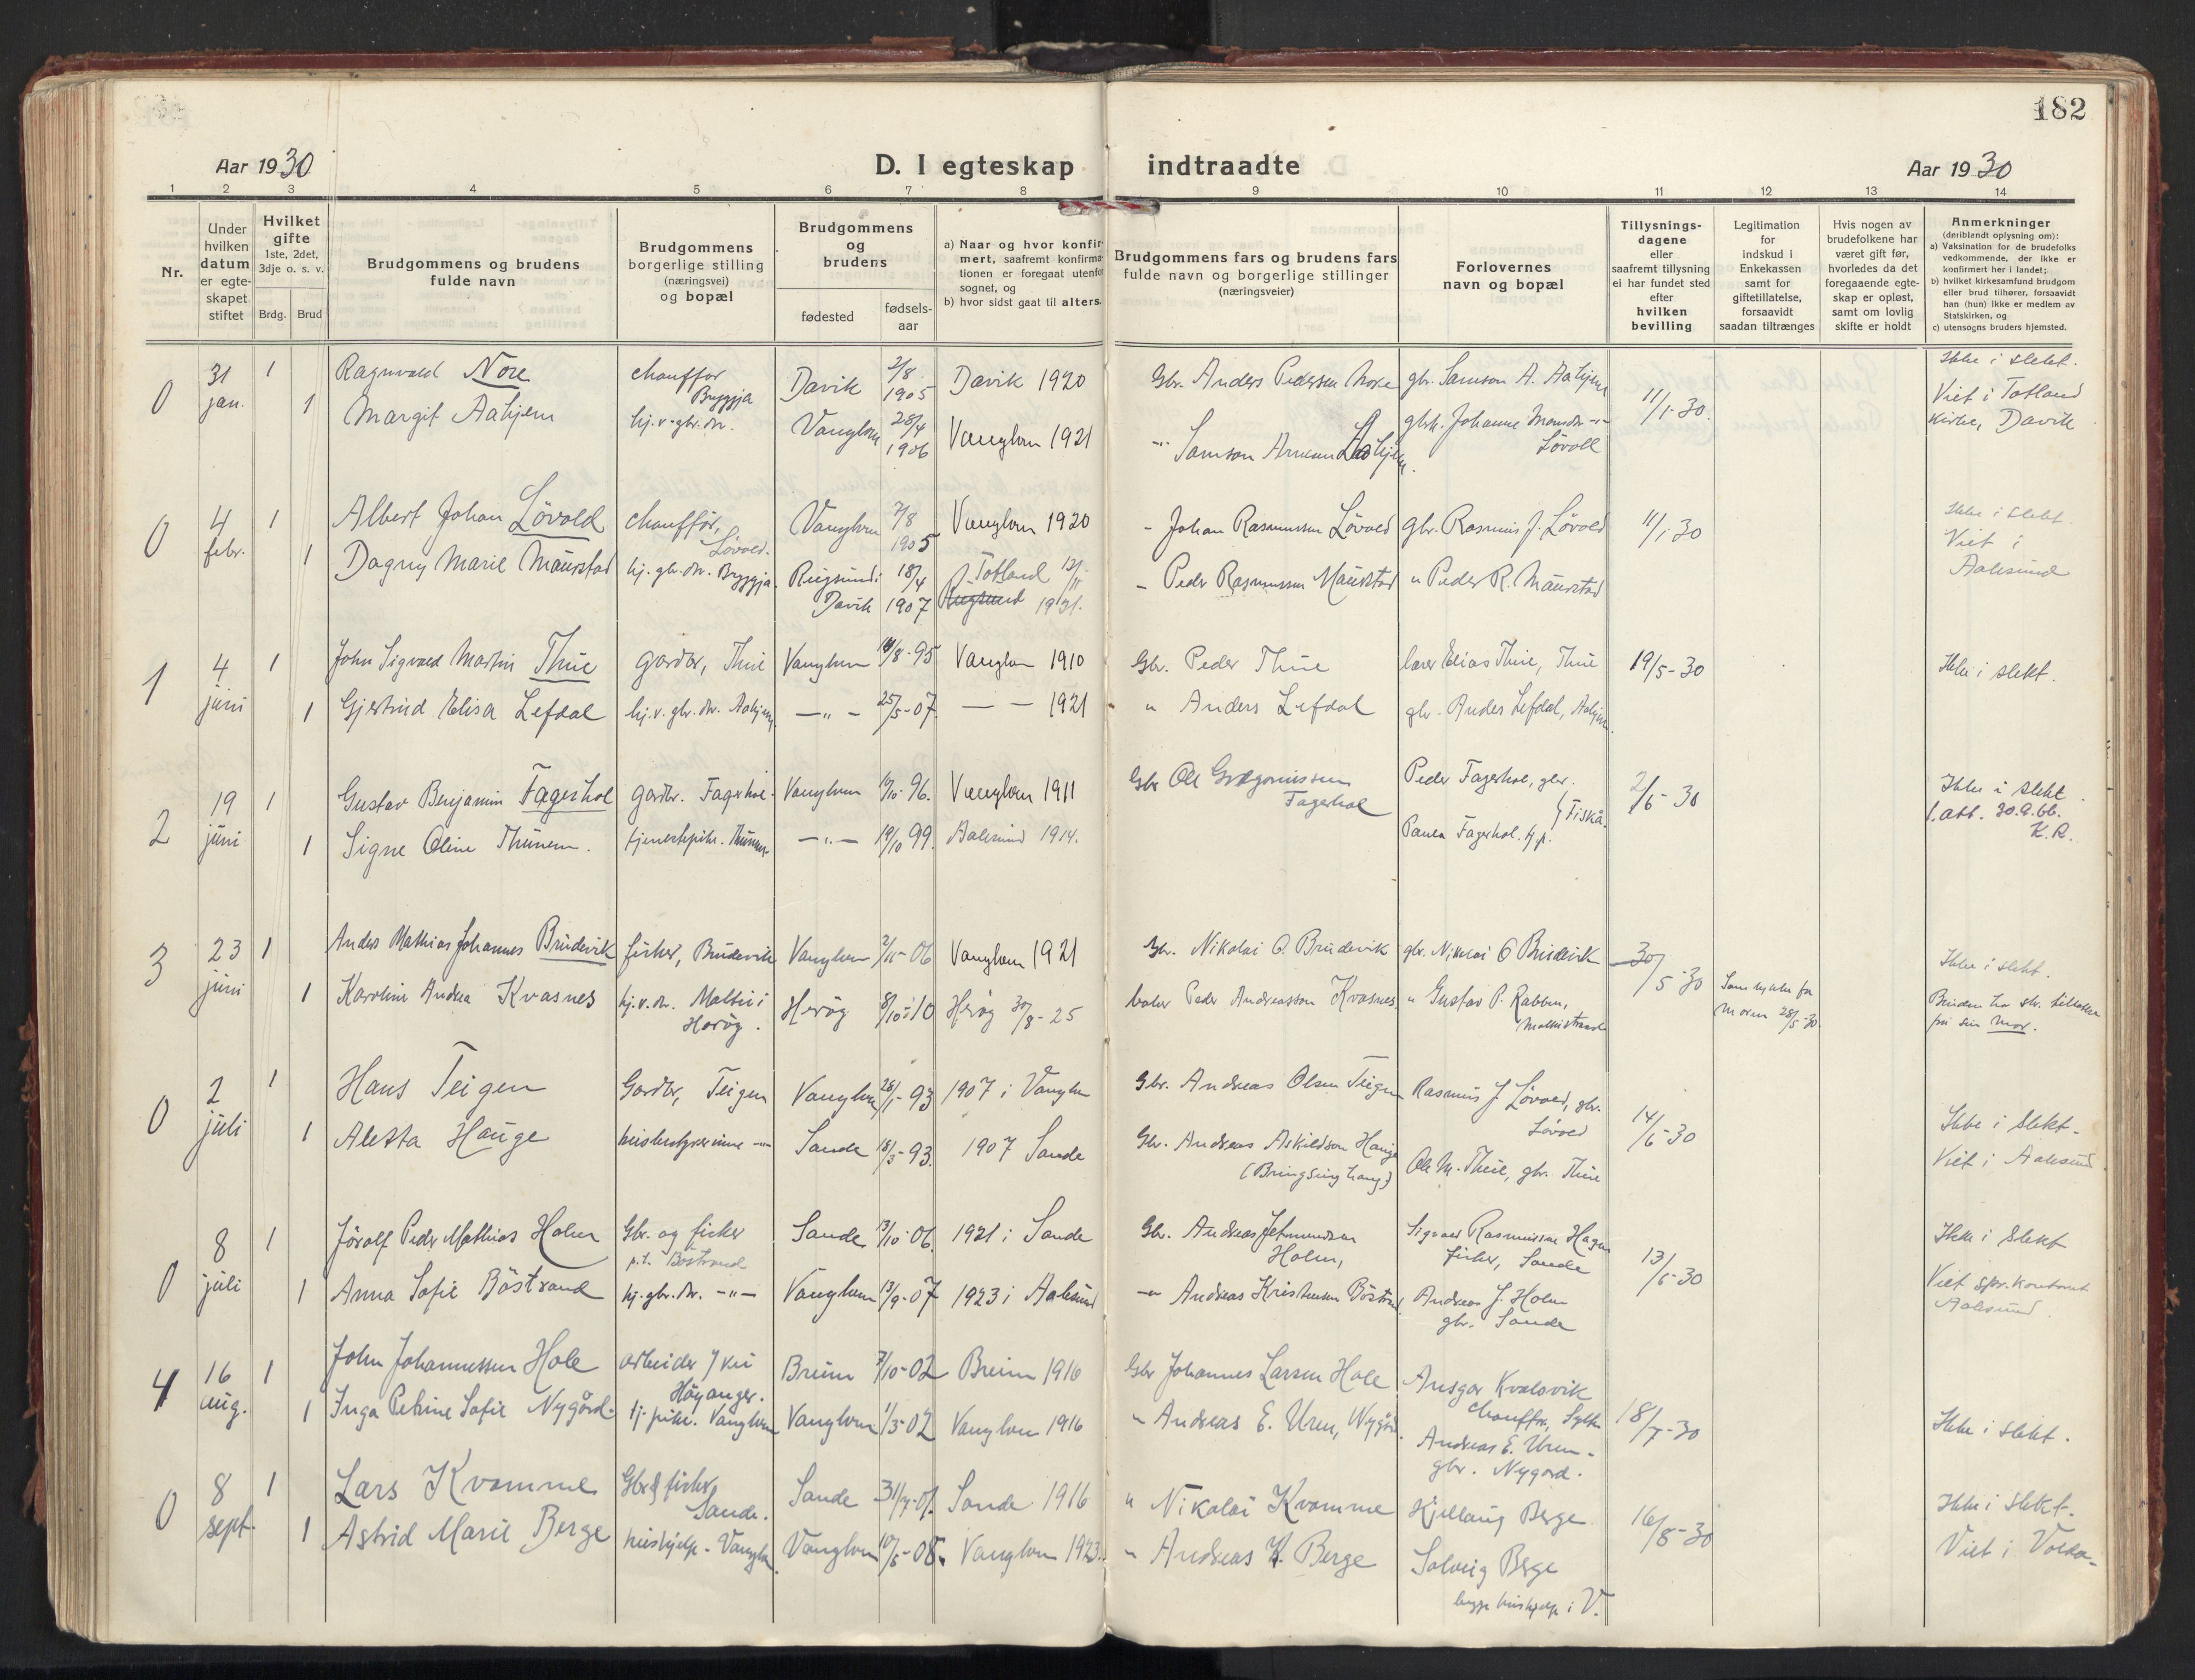 182
Aar 1930
D. I egteskap indtraadte
Aar 1930
1 2 3 4 5 6 7 8 9 10 11 12 13 14
Nr.
Under
hvilken
datum
er egte-
skapet
stiftet
Hvilket
gifte
1ste, 2det,
3dje o. s. v.
Brdg. Brud
Brudgommens og brudens
fulde navn
Brudgommens
borgerlige stilling
(næringsvei)
og bopæl
Brudgommens
og
brudens
fødested
fødsels-
aar
a) Naar og hvor konfir-
mert, saafremt konfirma-
tionen er foregaat utenfor
sognet, og
b) hvor sidst gaat til alters.
Brudgommens fars og brudens fars
fulde navn og borgerlige stillinger
(næringsveier)
Forlovernes
navn og bopæl
Tillysnings-
dagene
eller
saafremt tillysning
ei har fundet sted
efter
hvilken
bevilling
Legitimation
for
indskud i
Enkekassen
samt for
giftetillatelse,
forsaavidt
saadan tiltrænges
Hvis nogen av
brudefolkene har
været gift før,
hvorledes da det
foregaaende egte-
skap er opløst,
samt om lovlig
skifte er holdt
Anmerkninger
(deriblandt oplysning om):
a) Vaksination for de brudefolks
vedkommende, der ikke er
konfirmert her i landet;
b) hvilket kirkesamfund brudgom
eller brud tilhører, forsaavidt
han (hun) ikke er medlem av
Statskirken, og
c) utensogns bruders hjemsted.
0 31 jan. 1 Ragnvald Nore chauffør Bryggja Davik 2/8 1905 Davik 1920 Gbr. Anders Pedersen Nore gbr. Samson A. Aahjem 11/1-30. Ikke i slekt.
1 Margit Aahjem hj.v. gbr.dr. Vanylven 28/4 1906 Vanylven 1921 Samson Arnesen Aahjem. Johanne Løvoll Viet i Totland
kirke, Davik
0 4 febr. 1 Albert Johan Løvold chauffør, Løvold. Vanylven 7/8 1905 Vanylven 1920 - Johan Rasmussen Løvold gbr. Rasmus J. Løvold 11/1 30 Ikke i slekt.
1 Dagny Marie Maurstad hj. gbr.dr. Bryggja. Rugsund i Davik 18/4 1907 Totland Rugsund 1921. - Peder Rasmussen Maurstad " Peder R. Maurstad Viet i
Aalesund
1 4 juni 1 John Sigvald Martin Thue gardbr, Thue Vanylven 14/8-95 Vanylven 1910 Gbr. Peder Thue lærer Elias Thue, Thue 19/5-30 Ikke i slekt.
1 Gjertrud Elisa Lefdal hj.v. gbr.dr. Aahjem -"- 25/5-07 - - 1921 " Anders Lefdal gbr. Anders Lefdal, Aahjem
2 19 juni 1 Gustav Benjamin Fagerhol gardbr. Fagerhol. Vanylven 96. Vanylven 1911 Gbr Ole Gregoriussen Fagerhol Peder Fagerhol, gbr. 2/6-30 Ikke i slekt.
1 Signe Oline Thunem. tjenestepike. Thunem -"- 19/10 99. Aalesund 1914. Paula Fagerhol. tj.p. Fiskå. l.att. 30.9.66.
K.R.
3 23 juni 1 Anders Mathias Johannes Brudevik fisker, Brudevik Vanylven 06 Vanylven 1921 Gbr. Nikolai O. Brudevik gbr. Nikolai O Brudevik 30/5-30 Ikke i slekt.
1 Karoline Andrea Kvasnes hj.v.dr. Moltu i Herøy. Herøy 8/10-10 Herøy 30/8-25 Peder Andreassen Kvasnes " Gustav P. Rabben, Moltustrand Samtykke fra moren 28/5-30. Bruden har skr. tillatelse
fra sin mor.
0 2 juli 1 Hans Teigen Gardbr, Teigen Vanylven 28/1-93 1907 i Vanylven Gbr. Andreas Olsen Teigen Rasmus J. Løvold, gbr. Løvold 14/6-30 Ikke i slekt-
1 Aletta Hauge husbestyrerinne -"- Sande 18/3-93. 1907 Sande Gbr. Andreas Askildsen Hauge (Bringsinghaug) Ole M. Thue, gbr. Thue Viet i Aalesund
0 8 juli 1 Jørolf Peder Mathias Holm Gbr. og fisker p.t. Båstrand Sande 13/10-06. 1921 i Sande Gbr. Andreas Jetmundsen Holm, Sigvald Rasmussen Hagen fisker, Sande 13/6-30 Ikke i slekt
1 Anna Sofie Båstrand hj. gbr.dr. -"- Vanylven 13/9-07 1923 i Aalesund -" Andreas Kristensen Båstrand Andreas J. Holm gbr. Sande Viet spr.kontoret
Aalesund.
4 16 aug. 1 John Johannessen Hole arbeider Høyanger. Breim 7/10-02 Breim 1916 Gbr Johannes Larsen Hole Ansgar Kvalsvik chauffør, Sylte 18/7-30 Ikke i slekt.
1 Inga Petrine Sofie Nygård. tj. pike. Vanylven Vanylven 1/3-02 Vanylven 1916 " Andreas E. Uren, Nygård. Andreas E. Uren - gbr. Nygård.
0 8 sept. 1 Lars Kvamme Gbr & fisker, Sande. Sande 31/7-01. Sande 1916 " Nikolai Kvamme Kjellaug Berge 16/8-30 Ikke i slekt.
1 Astrid Marie Berge hushjelp - Vanylven Vanylven 08. Vanylven 1923. " Andreas K. Berge Solveig Berge Viet i Volda-
begge hushjelp i V.